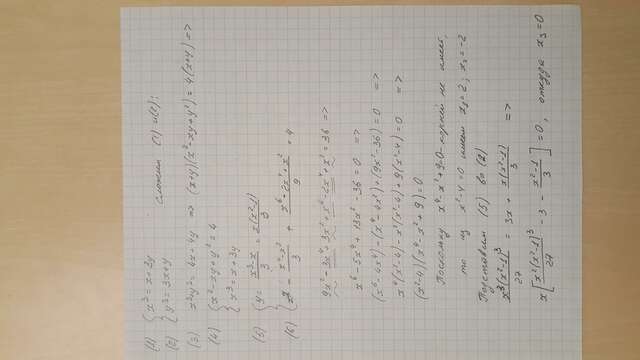 (1) { x³ = x + 3y
(2) { y³ = 3x + y
сложим (1) и (2):
(3) x³ + y³ = 4x + 4y => (x+y)(x² - xy + y²) = 4(x+y) =>
(4) { x² - xy + y² = 4
{ x³ = x + 3y
(5) { y = (x³ - x)/3 = x(x² - 1)/3
(6) { x² - (x⁴ - x²)/3 + (x⁶ - 2x⁴ + x²)/9 = 4
9x² - 3x⁴ + 3x² + x⁶ - 2x⁴ + x² = 36 =>
x⁶ - 5x⁴ + 13x² - 36 = 0 =>
(x⁶ - 4x⁴) - (x⁴ - 4x²) + (9x² - 36) = 0 =>
x⁴(x² - 4) - x²(x² - 4) + 9(x² - 4) = 0 =>
(x² - 4)(x⁴ - x² + 9) = 0
Поскольку x⁴ - x² + 9 = 0 - корней не имеет,
то из x² - 4 = 0 имеем x₁ = -2
Подставим (5) во (2)
x³(x² - 1)³/27 = 3x + x(x² - 1)/3 =>
x[x²(x² - 1)³/27 - 3 - (x² - 1)/3] = 0, откуда x₃ = 0